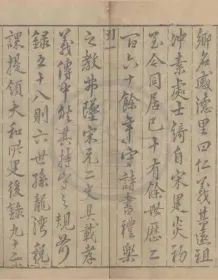 鄉名感德里曰仁義其遠祖
沖素處士綺自宋建炎初
至今同居已十有餘世歷二
百六十餘年守詩書禮樂
之教弗墜宋元二史具載孝
義傳中然其持守之規前
錄五十八則六世孫龍灣稅
課提領大和所建後錄九十二